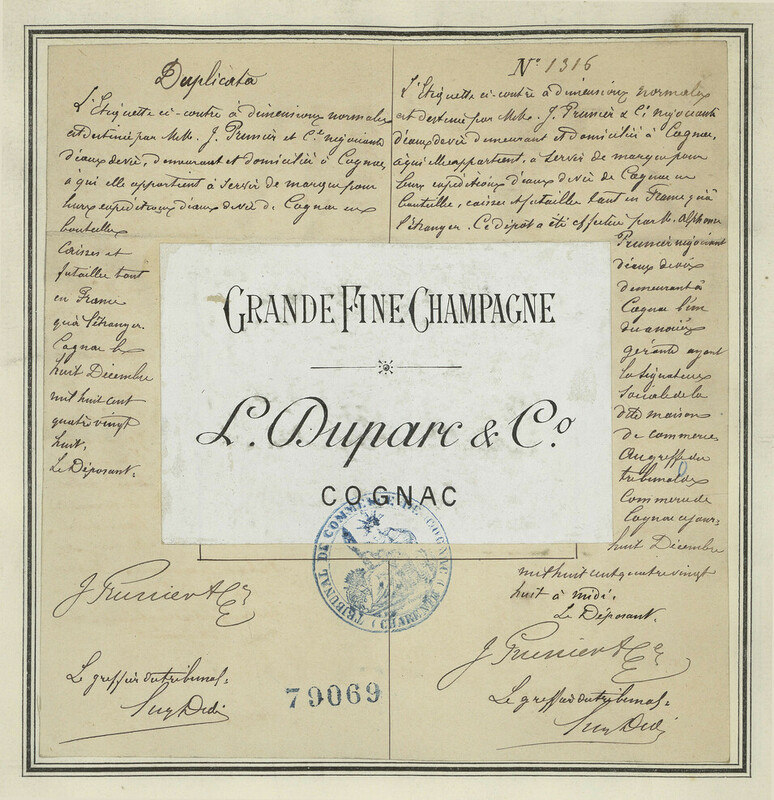 Duplicata
L'Etiquette ci-contre à dimensions normales
est destinée par MMrs. J. Prunier et Cie négociants
d'eaux de vie, demeurant et domiciliés à Cognac,
à qui elle appartient à servir de marque pour
leurs expéditions d'eaux de vie de Cognac en
bouteilles
Caisses et
futailles tant
en France
qu'à l'étranger
Cognac le
huit Décembre
mil huit cent
quatre vingt
huit.
Le Déposant.
J Prunier & Cie
Le greffier du tribunal
No 1316
L'Etiquette ci-contre à dimensions normales
est destinée par MMrs. J. Prunier & Cie négociants
d'eaux de vie demeurant et domiciliés à Cognac,
à qui elle appartient, à servir de marque pour
leurs expéditions d'eaux de vie de Cognac en
bouteilles, caisses et futailles tant en France qu'à
l'étranger. Ce dépôt a été effectué par M. Alphonse
Prunier négociant
d'eaux de vie
demeurant à
Cognac l'un
des associés
gérants ayant
la signature
sociale de la
dite maison
de commerce
Au greffe du
tribunal de
Commerce de
Cognac ce jour
huit Décembre
mil huit cent quatre vingt
huit à midi.
Le Déposant.
J Prunier & Cie
Le greffier du tribunal
GRANDE FINE CHAMPAGNE
L. Duparc & Co
COGNAC
TRIBUNAL DE COMMERCE DE COGNAC (CHARENTE)
79069